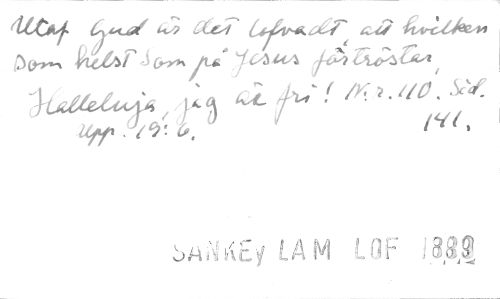 Utaf Gud är det lofvadt, att hvilken
som helst Som på Jesus förtröstar,
Halleluja, jag är fri! N:r. 110. Sid.
Upp. 19:6. 141.
SANKEY LAM LOF 1889